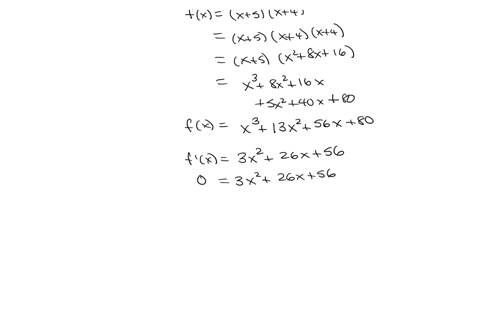 f(x) = (x+5)(x+4)
= (x+5)(x+4)(x+4)
= (x+5)(x²+8x+16)
= x³+8x²+16x
+5x²+40x+80
f(x) = x³+13x²+56x+80
f'(x) = 3x²+26x+56
0 = 3x²+26x+56